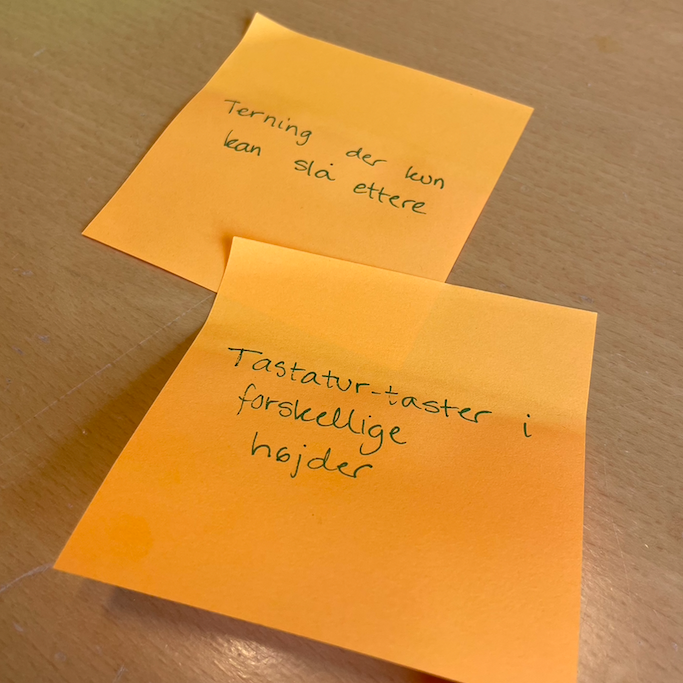 Terning der kun
kan slå ettere
Tastatur-taster i
forskellige
højder